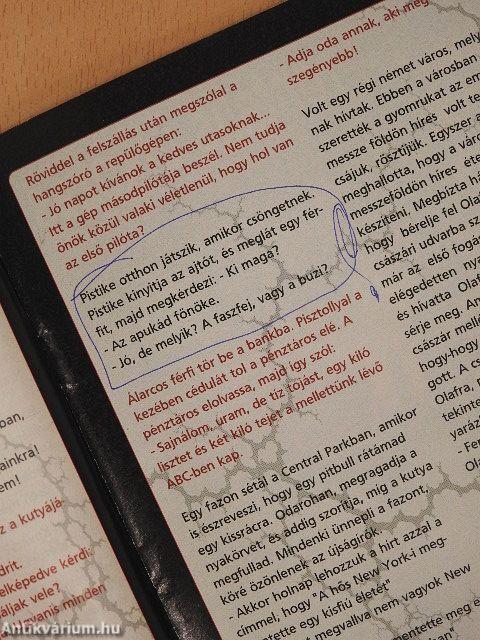 Röviddel a felszállás után megszólal a
hangszóró a repülőgépen:
- Jó napot kívánok a kedves utasoknak...
Itt a gép másodpilótája beszél. Nem tudja
önök közül valaki véletlenül, hogy hol van
az első pilóta?
Pistike otthon játszik, amikor csöngetnek.
Pistike kinyitja az ajtót, és meglát egy fér-
fit, majd megkérdezi: - Ki maga?
- Az apukád főnöke.
- Jó, de melyik? A faszfej, vagy a buzi?
Álarcos férfi tör be a bankba. Pisztollyal a
kezében cédulát tol a pénztáros elé. A
pénztáros elolvassa, majd így szól:
- Sajnálom, uram, de tíz tojást, egy kiló
lisztet és két kiló tejet a mellettünk lévő
ABC-ben kap.
Egy fazon sétál a Central Parkban, amikor
is észreveszi, hogy egy pitbull rátámad
egy kissrácra. Odarohan, megragadja a
nyakörvét, és addig szorítja, míg a kutya
megfullad. Mindenki ünnepli a fazont,
köré özönlenek az újságírók.
- Akkor holnap lehozzuk a hírt azzal a
címmel, hogy "A hős New York-i meg-
mentette egy kisfiú életét"
megvallva nem vagyok New
- Adja oda annak, aki még
szegényebb!
Volt egy régi német város, mely
nak hívtak. Ebben a városban
szerették a gyomrukat az em
messze földön híres volt te
csájuk, rösztijük. Egyszer a
meghallotta, hogy a váro
messzeföldön híres éte
készíteni. Megbízta há
hogy bérelje fel Olaf
császári udvarba sz
már az első fogás
elégedetten nya
és hívatta Olafo
sérje meg. Am
császár mellé
hogy-hogy
gott. A cs
Olafra, m
tekinte
yaráz
- Fer
Ola
ban,
ainkra!
em!
z a kutyájá
drit.
elképedve kérdi:
áljak vele?
gyanis minden
Antikvárium.hu